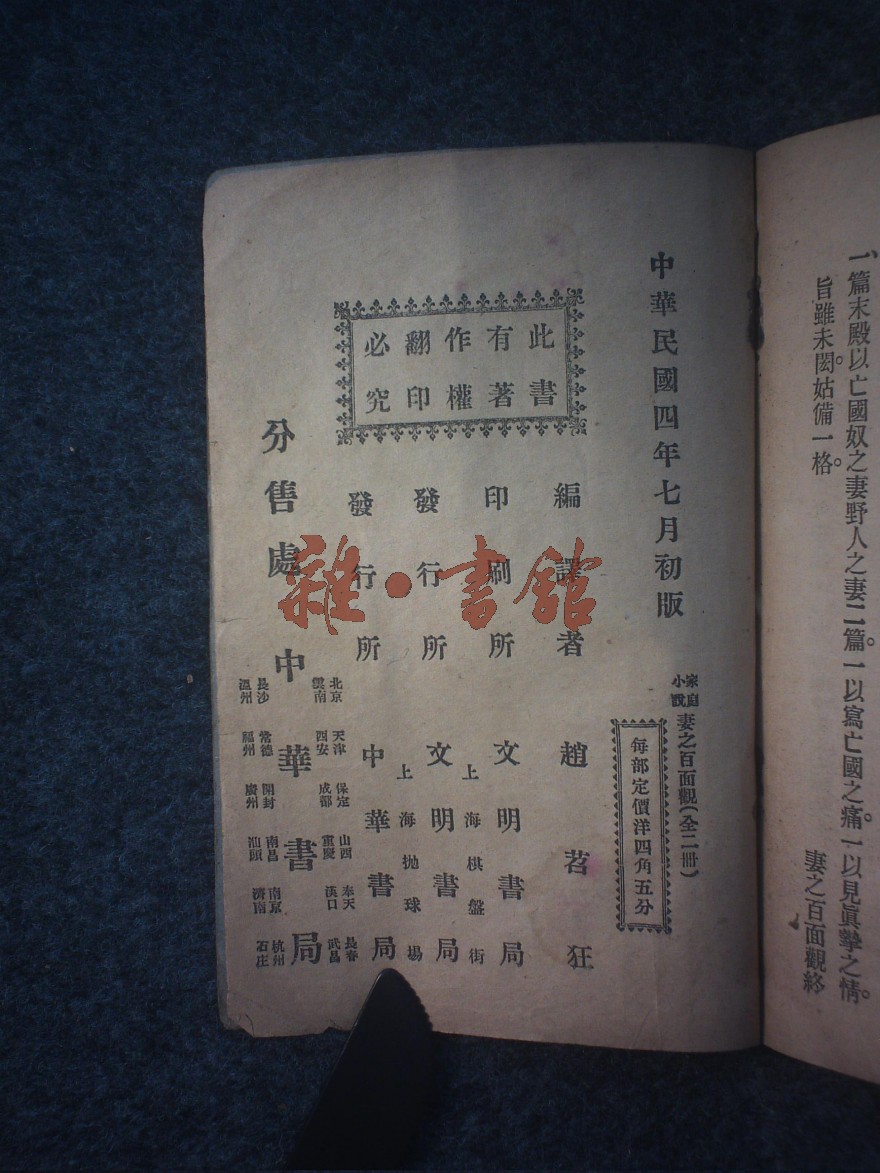 一、篇末殿以亡國奴之妻野人之妻二篇。一以寫亡國之痛。一以見眞摯之情。
旨雖未閎。姑備一格。
妻之百面觀終
中華民國四年七月初版
家庭小說 妻之百面觀(全二冊)
每部定價洋四角五分
此書
有著
作權
翻印
必究
編譯者 趙苕狂
印刷所 文明書局
上海棋盤街
發行所 文明書局
上海拋球場
發行所 中華書局
分售處 中華書局
北京 天津 保定 山西 奉天 長春
雲南 西安 成都 重慶 漢口 武昌
長沙 常德 開封 南昌 南京 杭州
溫州 福州 廣州 汕頭 濟南 石庄
雜·書館